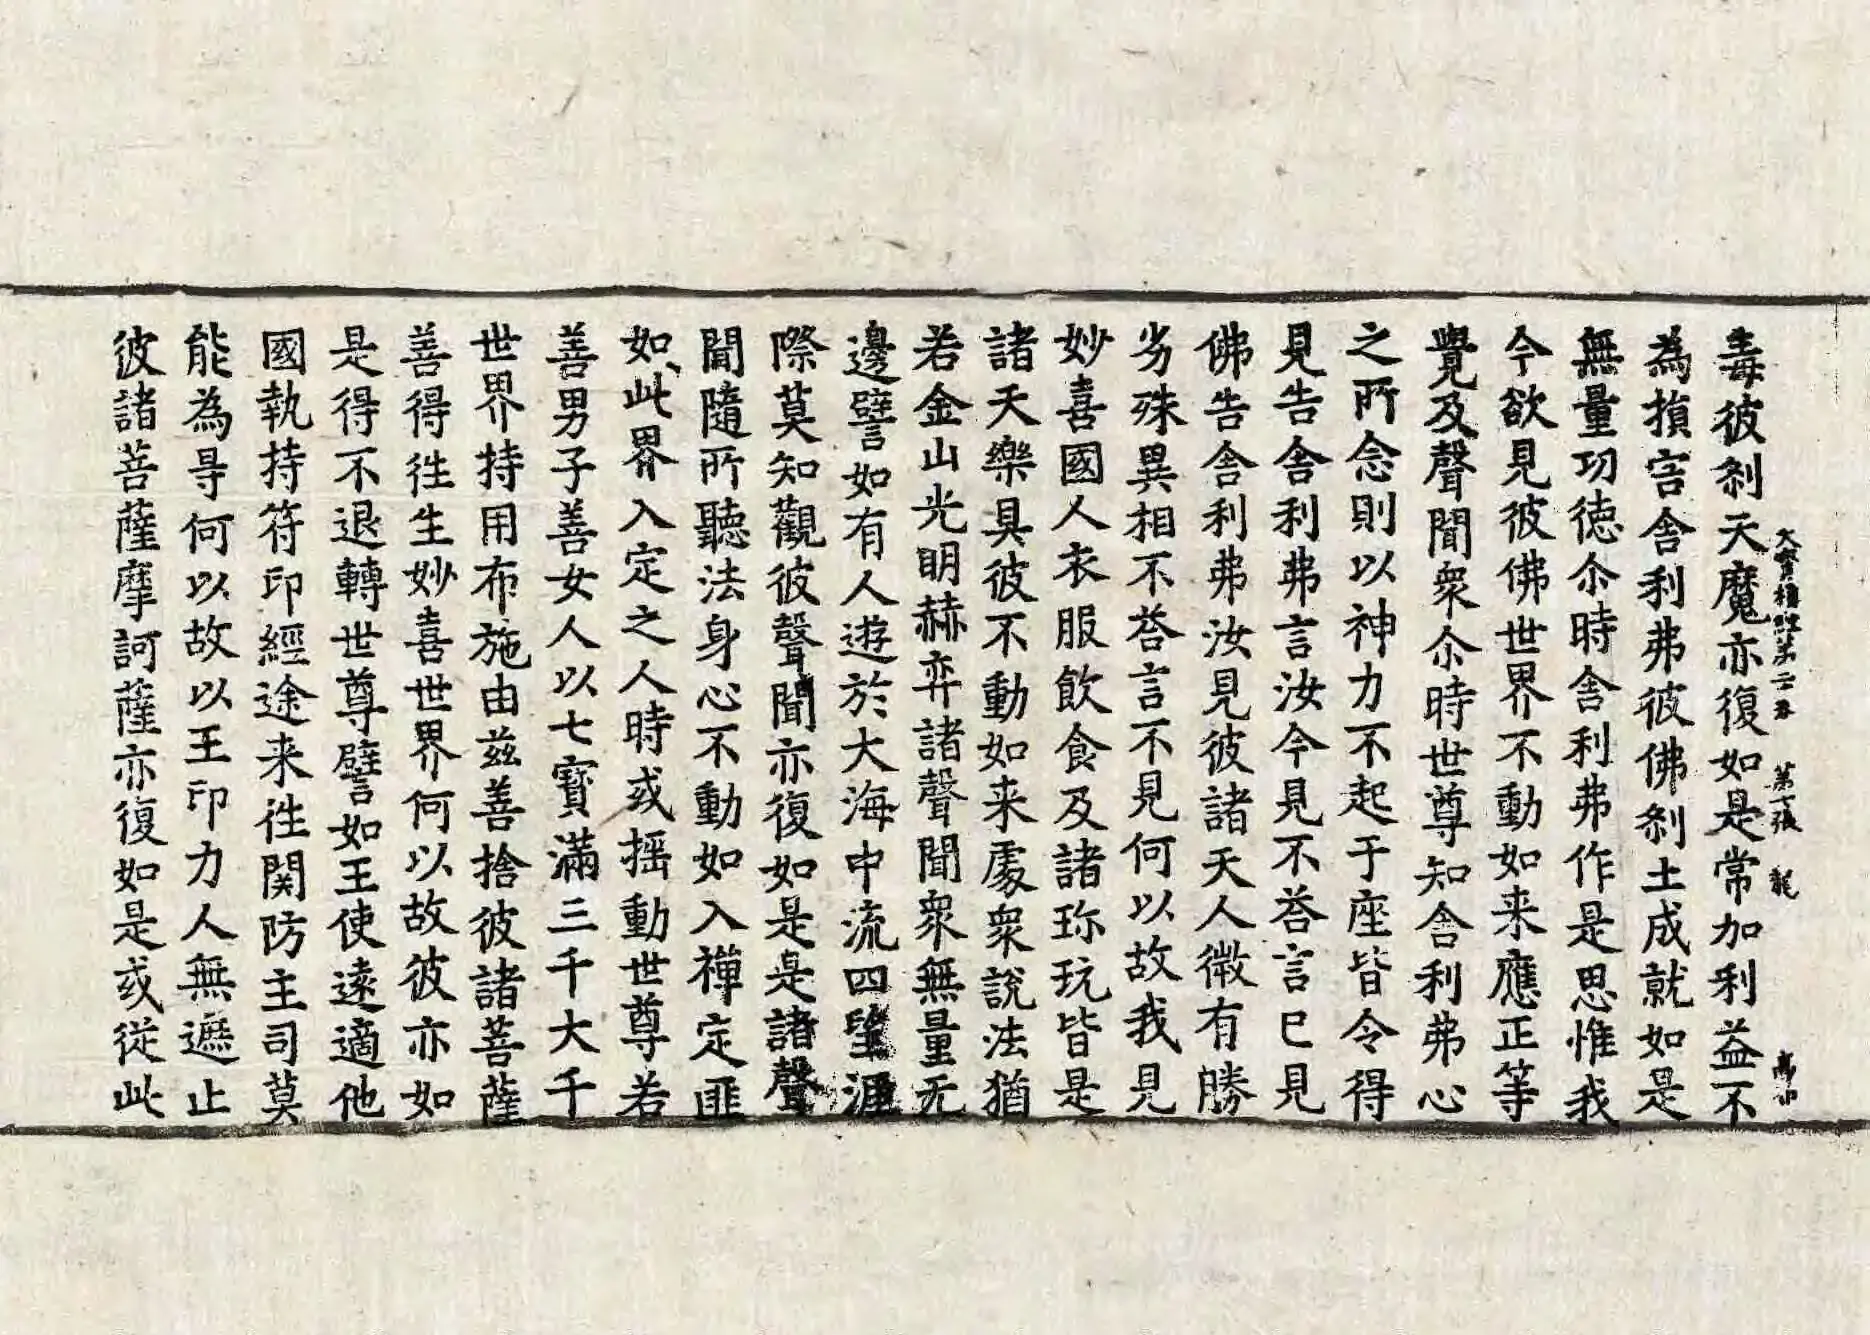 毒彼刹天魔亦復如是常加利益不
為損害舎利弗彼佛刹土成就如是
無量功徳尒時舎利弗作是思惟我
今欲見彼佛世界不動如来應正等
覺及聲聞衆尒時世尊知舎利弗心
之所念則以神力不起于座皆令得
見告舎利弗言汝今見不荅言已見
佛告舎利弗汝見彼諸天人微有勝
劣殊異相不荅言不見何以故我見
妙喜國人衣服飲食及諸珎玩皆是
諸天樂具彼不動如来處衆說法猶
若金山光明赫弈諸聲聞衆無量无
邊譬如有人遊於大海中流四望涯
際莫知觀彼聲聞亦復如是是諸聲
聞隨所聽法身心不動如入禪定匪
如此界入定之人時或摇動世尊若
善男子善女人以七寳滿三千大千
世界持用布施由兹善捨彼諸菩薩
善得徃生妙喜世界何以故彼亦如
是得不退轉世尊譬如王使遠適他
國執持符印經途来徃関防主司莫
能為㝵何以故以王印力人無遮止
彼諸菩薩摩訶薩亦復如是或従此